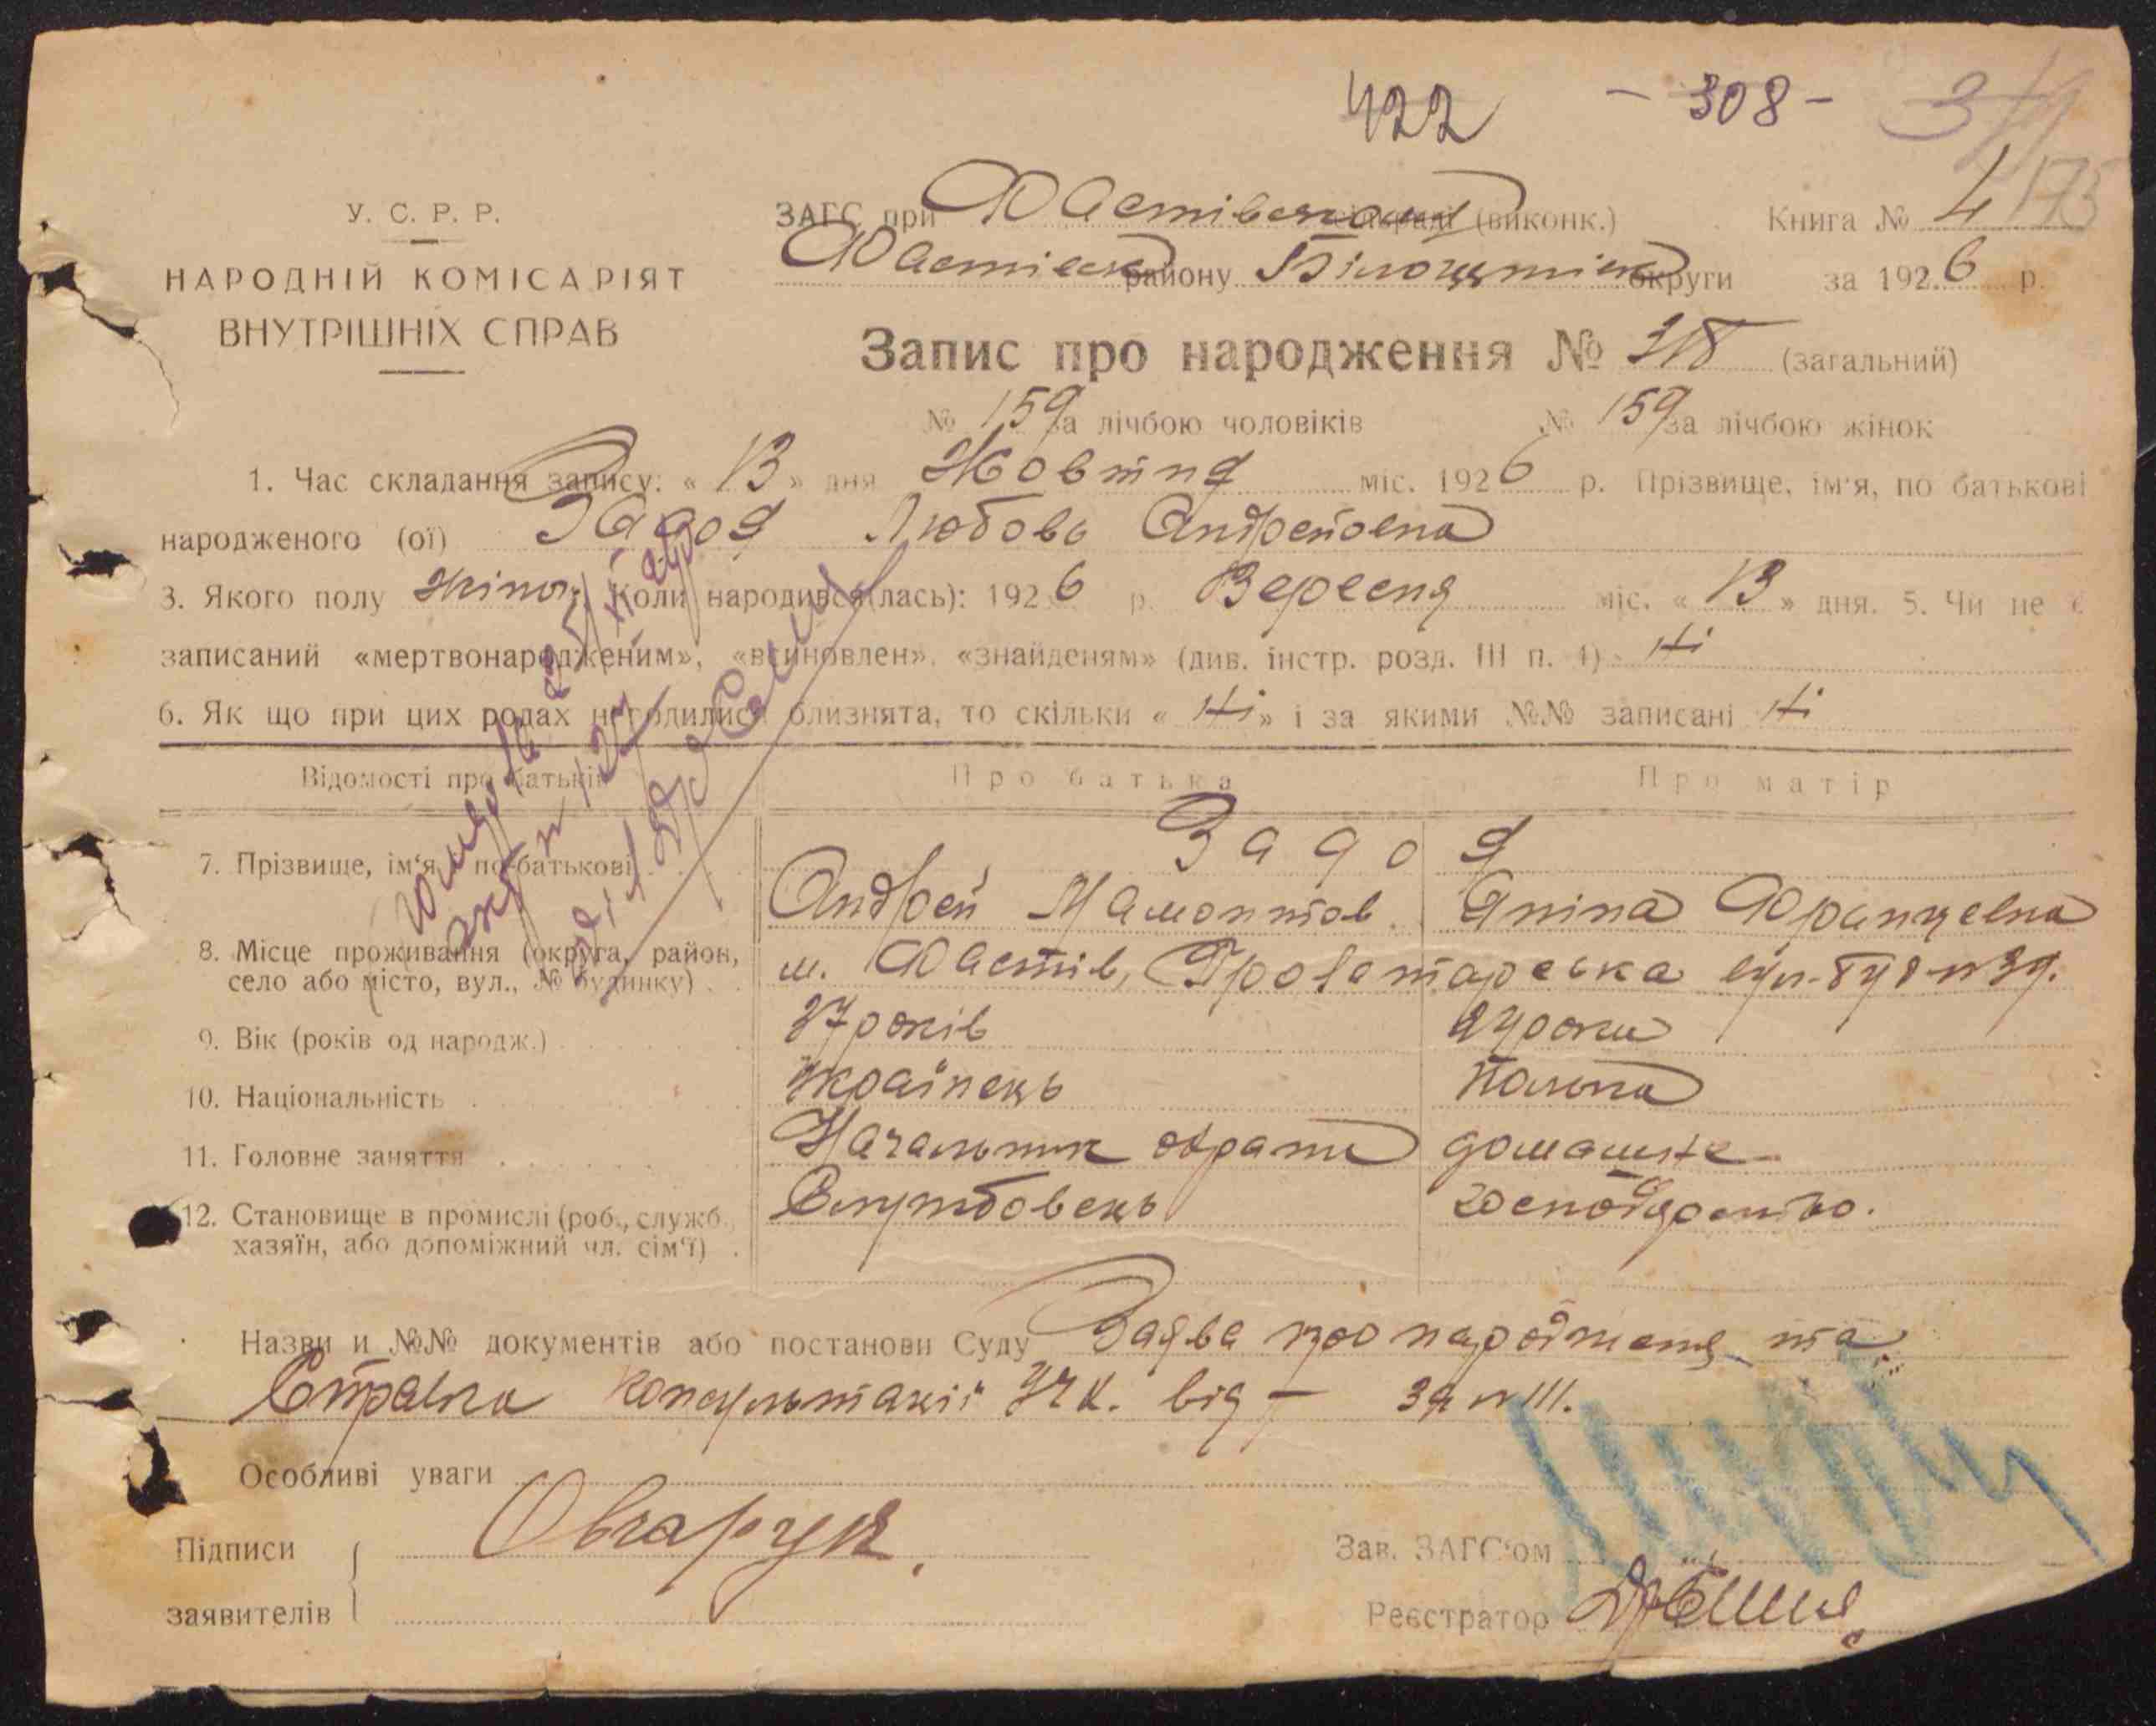 422 - 308 -
У. С. Р. Р.
НАРОДНІЙ КОМІСАРІЯТ
ВНУТРІШНІХ СПРАВ
ЗАГС при Фастівськом сільраді (виконк.) Книга № 4 175
Фастівськ району Білоцерків округи за 1926 р.
Запис про народження № 318 (загальний)
№ 159 за лічбою чоловіків № 159 за лічбою жінок
1. Час складання запису: « 13 » дня Жовтня міс. 1926 р. Прізвище, ім'я, по батькові
народженого (ої) Задоя Любовь Андреёвна
3. Якого полу жіноч. Коли народився(лась): 1926 р. Вересня міс. « 13 » дня. 5. Чи не є
записаний «мертвонародженим», «всиновлен», «знайденям» (див. інстр. розд. III п. 4) Ні
6. Як що при цих родах народилися близнята, то скільки « Ні » і за якими №№ записані Ні
Відомості про батьків Про батька Про матір
Задоя
7. Прізвище, ім'я, по-батькові Андрей Мамонтов. Яніна Францевна
8. Місце проживання (округа, район, село або місто, вул., № будинку) м. Фастів, Пролетарська вул. буд №39.
9. Вік (років од народж.) 37 років 24 роки
10. Національність Українець Полька
11. Головне заняття Начальник охрани домашнє
12. Становище в промислі (роб., служб., хазяїн, або допоміжний чл. сім'ї) Службовець господарство.
Назви и №№ документів або постанови Суду Заява про народження та
Справка консультації від — за № 111.
Особливі уваги
Підписи Овчарук. Зав. ЗАГС'ом
заявителів Реєстратор